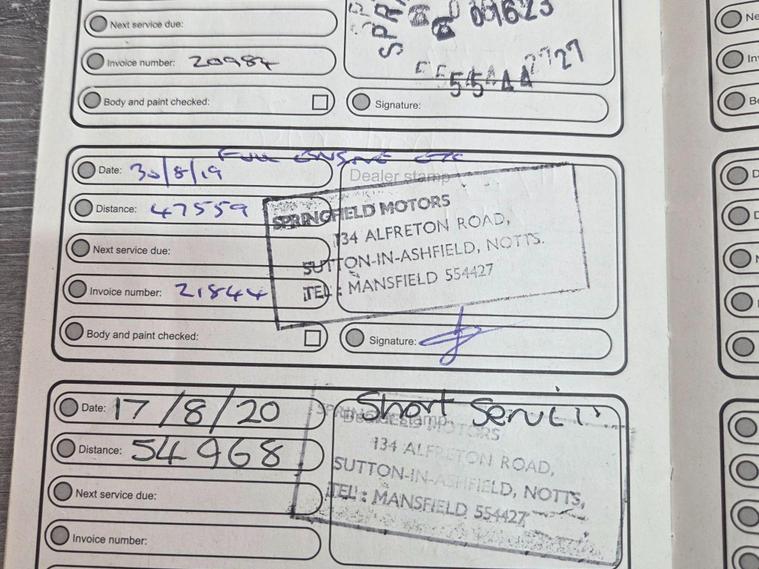 01623
Next service due:
Invoice number: 20984
Body and paint checked:
Signature:
FULL ENGINE ETC
Date: 30/8/19
Dealer stamp
Distance: 47559
SPRINGFIELD MOTORS
134 ALFRETON ROAD,
Next service due:
SUTTON-IN-ASHFIELD, NOTTS.
Invoice number: 21844
TEL : MANSFIELD 554427
Body and paint checked:
Signature:
Short Servic
Date: 17/8/20
Dealer stamp
SPRINGFIELD MOTORS
Distance: 54968
134 ALFRETON ROAD,
SUTTON-IN-ASHFIELD, NOTTS,
Next service due:
TEL : MANSFIELD 554427
Invoice number: